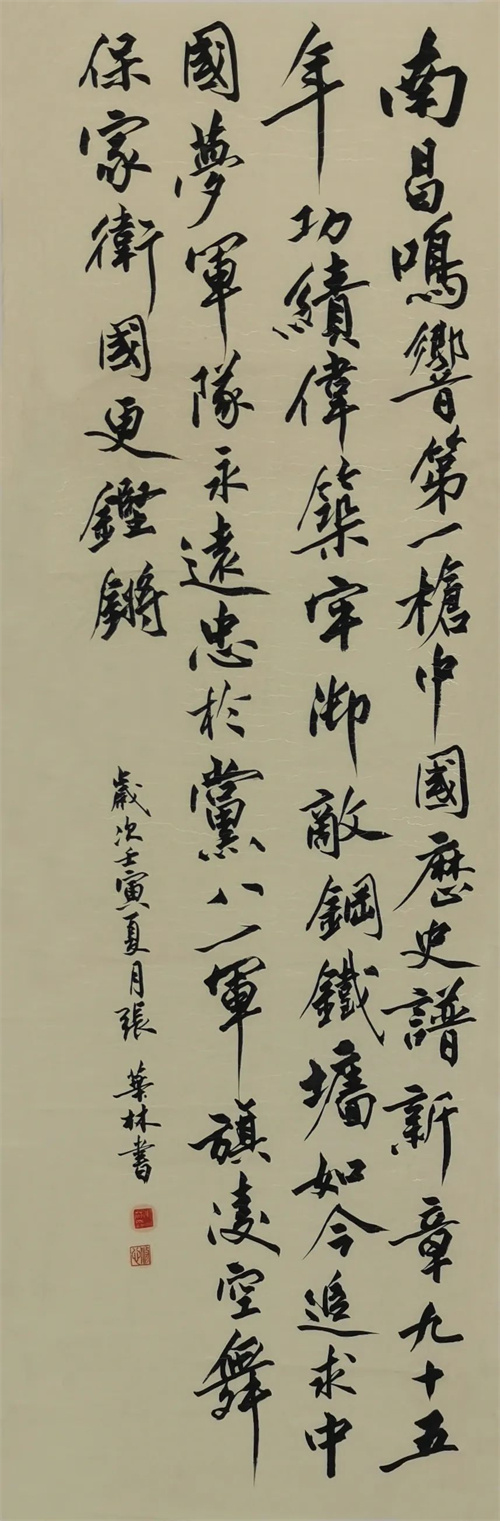 南昌鳴響第一槍中國歷史譜新章九十五
年功績偉築牢御敵鋼鐵墻如今追求中
國夢軍隊永遠忠於黨八一軍旗凌空舞
保家衛國更鏗鏘
歲次壬寅夏月張葉林書